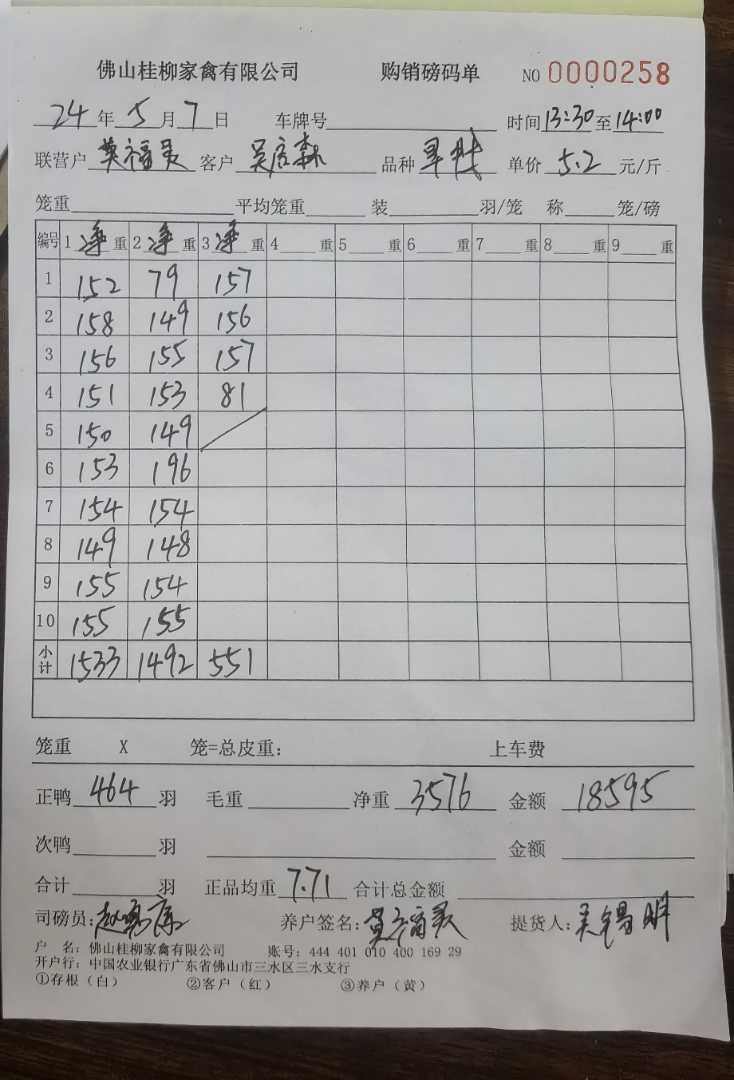 佛山桂柳家禽有限公司 购销磅码单 NO 0000258
24年5月7日 车牌号 时间13:30至14:00
联营户 莫福灵 客户 吴 森 品种 单价 5.2 元/斤
笼重 平均笼重 装 羽/笼 称 笼/磅
编号 1 净重 2 净重 3 净重 4 重 5 重 6 重 7 重 8 重 9 重
1 152 79 157
2 158 149 156
3 156 155 157
4 151 153 81
5 150 149
6 153 196
7 154 154
8 149 148
9 155 154
10 155 155
小计 1533 1492 551
笼重 X 笼=总皮重: 上车费
正鸭 464 羽 毛重 净重 3576 金额 18595
次鸭 羽 金额
合计 羽 正品均重 7.71 合计总金额
司磅员: 养户签名:莫福灵 提货人:吴锡明
户 名: 佛山桂柳家禽有限公司 账号: 444 401 010 400 169 29
开户行: 中国农业银行广东省佛山市三水区三水支行
①存根(白) ②客户(红) ③养户(黄)